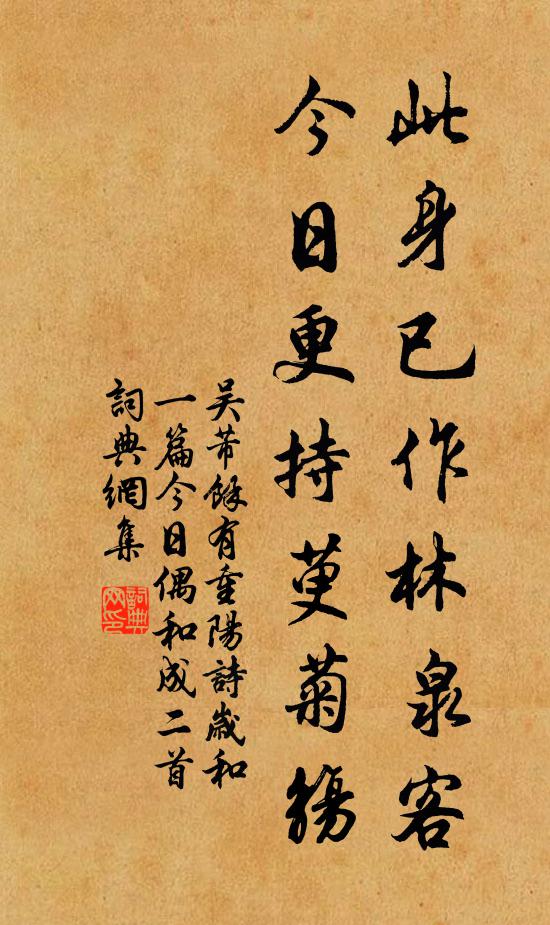 此身已作林泉客
今日更持萸菊觴
吴芾餘有重陽詩歲和
一篇今日偶和成二首
詞典網集
詞典網印